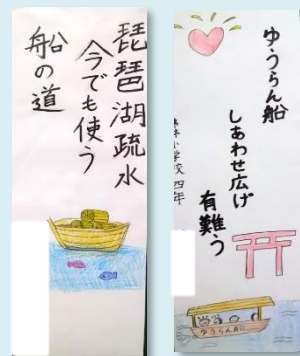 琵琶湖疏水
今でも使う
船の道
ゆうらん船
しあわせ広げ
有難う
小学校四年
ゆうらん船